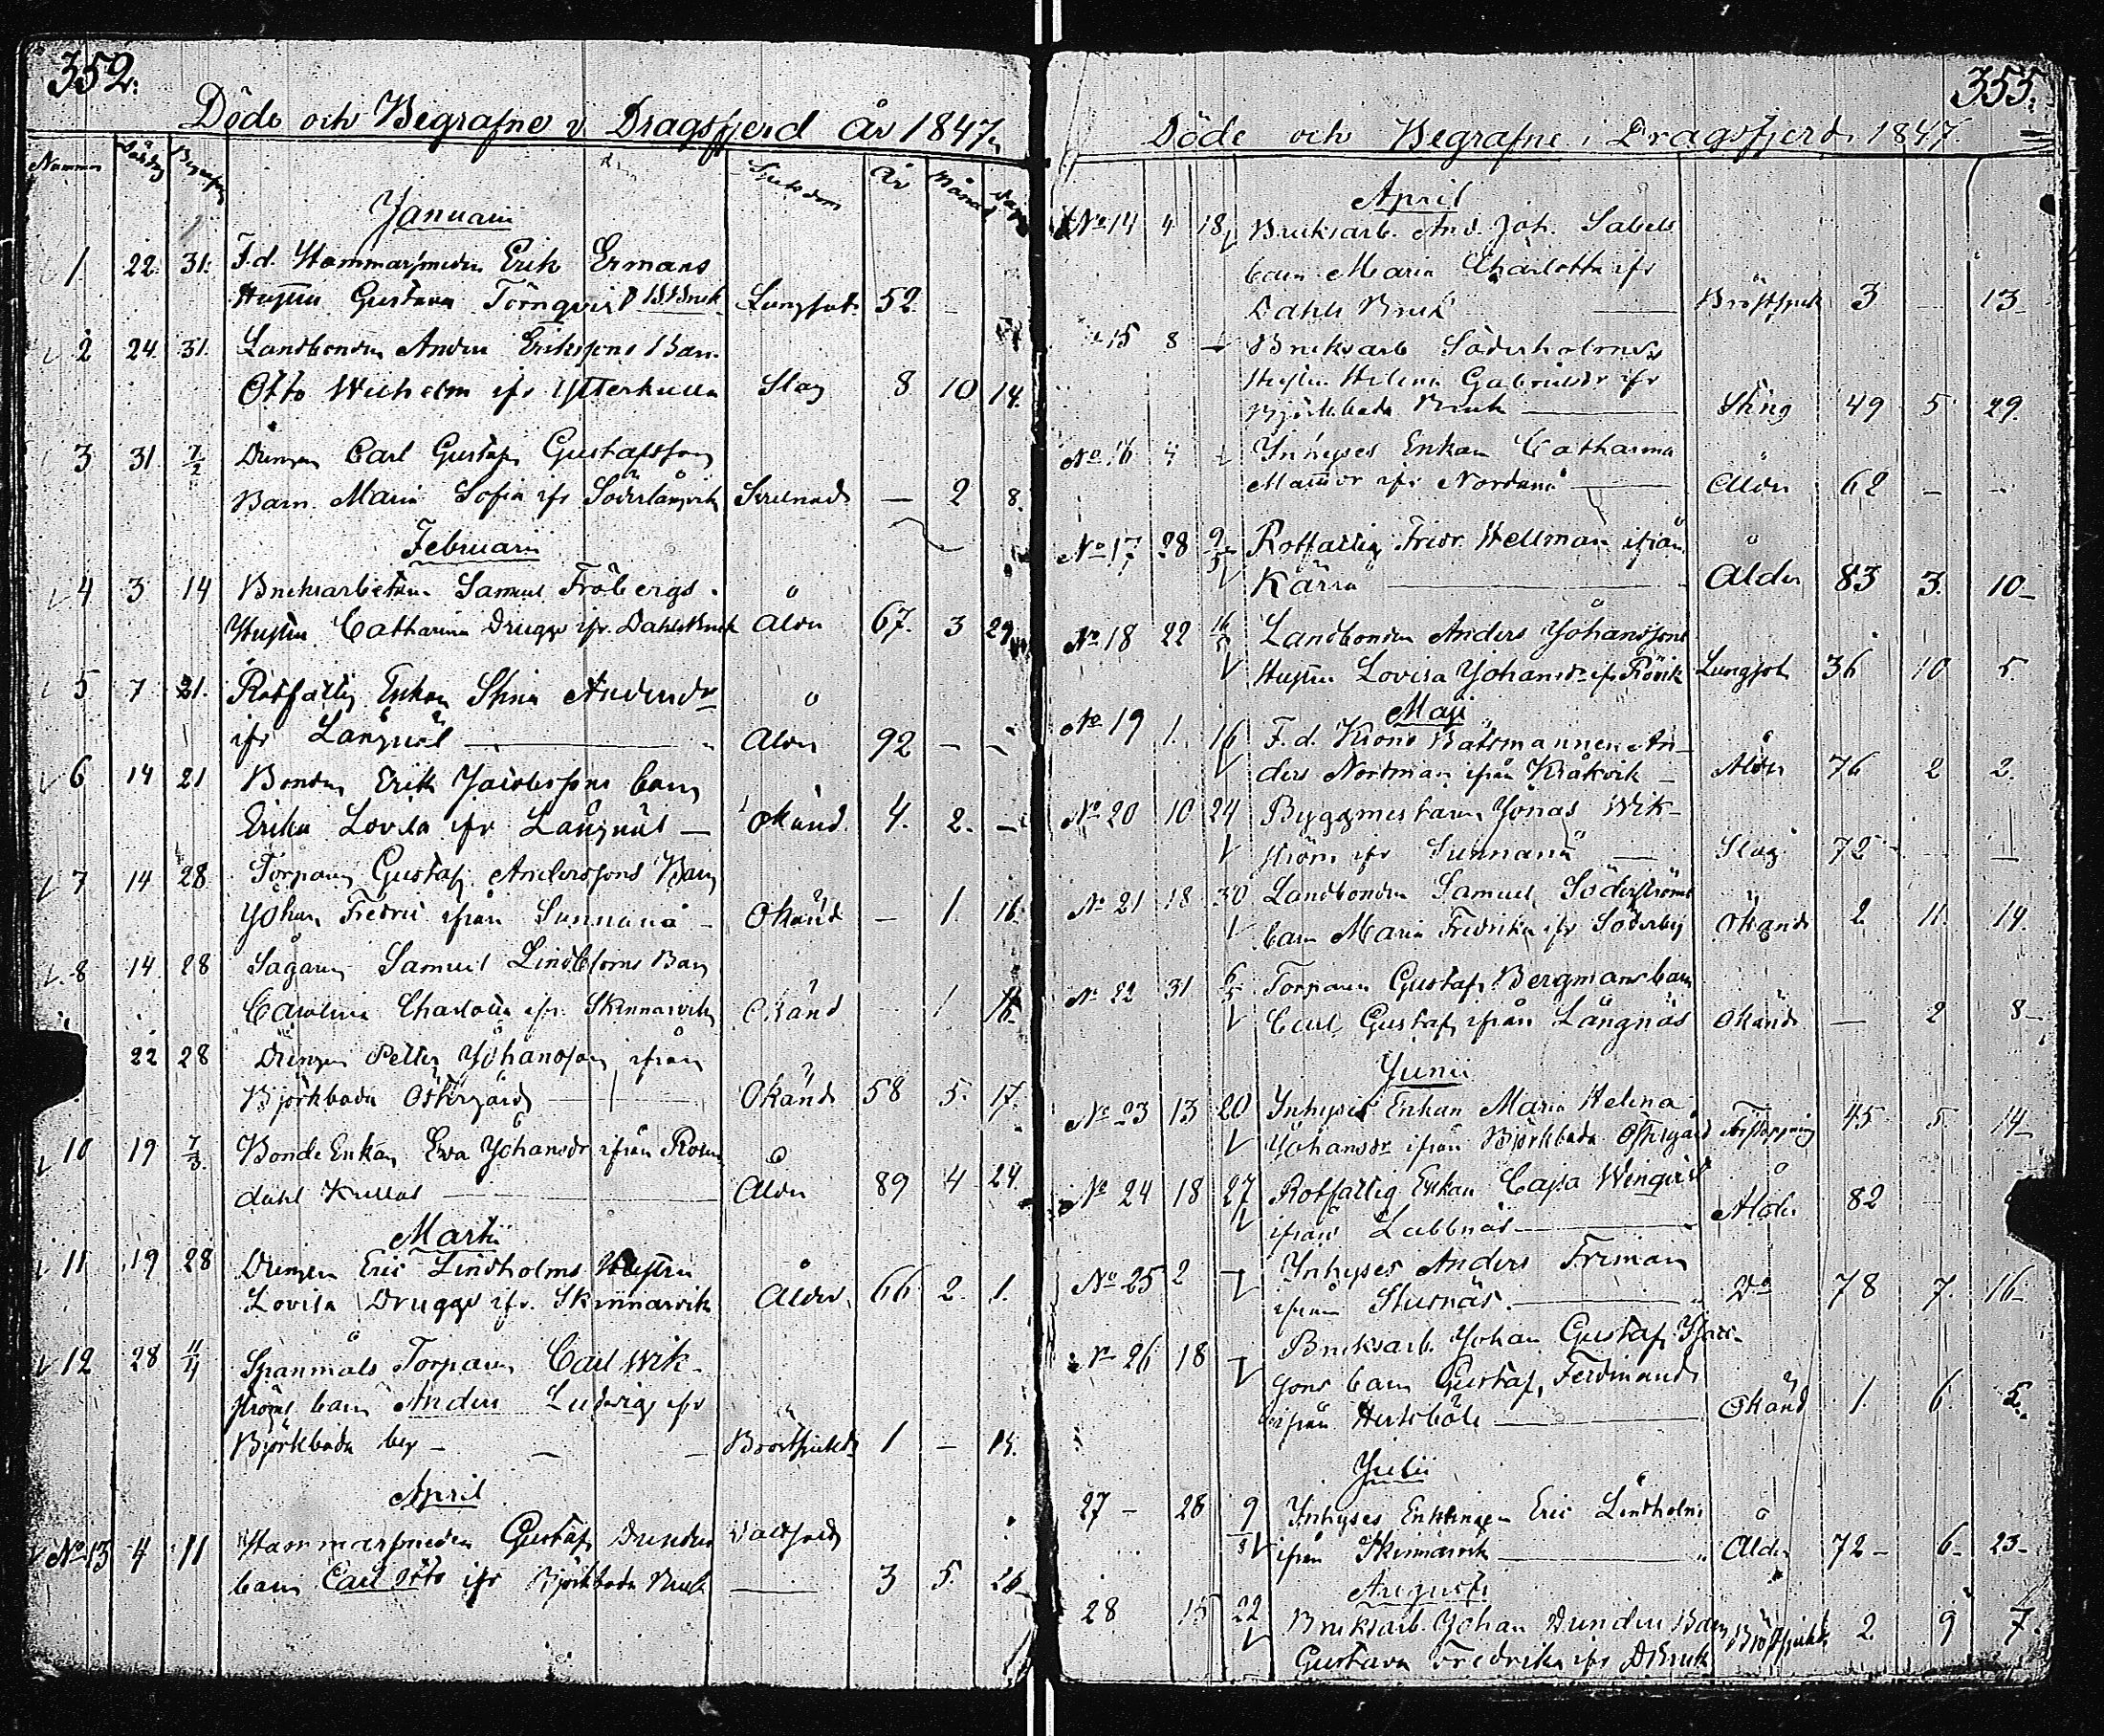 352.
Döde och Begrafne i Dragsfjerd År 1847.
Nummer Dödsdag Begrafn. Sjukdom År Månad Dagar
Januarii
1 22. 31. F.d. Hammarsmeden Erik Ermans
Hustru Gustava Törnqvist Lungsot. 52. -
2 24. 31. Landbonden Anders Erikssons Barn
Otto Wilhelm ifr Ytterkulla Slag 8 10 14.
3 31 7/2 Drengen Carl Gustaf Gustafsson
Barn Maria Sofia ifr Söderlångvik — 2 8.
Februarii
4 3 14 Bruksarbetaren Samuel Fröbergs
Hustru Catharina Druggs ifr. Dahls Bruk Ålder 67. 3 29
5 7 21. Rotfattig Enkan Stina Andersdr
ifr Långnäs — Ålder 92 - -
6 14 21 Bonden Erik Jacobssons barn
Erika Lovisa ifr Långnäs — Okänd. 4. 2. -
7 14 28 Torparen Gustaf Anderssons Barn
Johan Fredric ifrån Sunnanå - Okänd — 1. 16.
8 14. 28 Sågaren Samuel Lindbloms Barn
Carolina Charlotta ifr. Skinnarvik Okänd 1 16.
22 28 Drengen Petter Johansson ifrån
Björkboda Östergård — Okänd 58 5. 17.
10 19 7/3 Bonde Enkan Eva Johansdr ifrån Rosen
dahl Kullas — Ålder 89 4 24.
Martii
11 19 28 Drengen Eric Lindholms Hustru
Lovisa Druggs ifr. Skinnarvik Ålder. 66 2. 1.
12 28 11/4 Spanmåls Torparen Carl Wik-
ströms barn Anders Ludvig ifr
Björkboda by - - Bröstsjukd. 1 - 15.
April
No 13 4 11 Hammarsmeden Gustaf Dunders
barn Carl Otto ifr Björkboda Bruk — 3 5. 26
355.
Döde och Begrafne i Dragsfjerd 1847.
April
No 14 4 18 Bruksarb. And. Joh. Sabels
barn Maria Charlotta ifr
Dahls Bruk — Bröstsjuk 3 — 13
15 8 - Bruksarb Söderholms
Hustru Helena Gabrielsdr ifr
Björkboda Bruk — Sting 49 5. 29.
No 16 4 Inhyses Enkan Catharina
ifr Nordanå — Ålder 62 - -
No 17 28 9/5 Rotfattig Fridr. Hellman ifrån
Kärra — Ålder 83 3. 10
No 18 22 16/5 Landbonden Anders Johanssons
Hustru Lovisa Johansdr ifr Rövik Lungsot 36 10 5.
Maji
No 19 1. 16 F.d. Krono Båtsmannen An-
ders Nordman ifrån Kråkvik - Ålder 76 2 2.
No 20 10 24 Byggmestaren Jonas Wik-
ström ifr Sunnanå — Slag 72 - —
No 21 18 30 Landbonden Samuel Söderströms
barn Maria Fredrika ifr Söderby Okänd 2 11. 14.
No 22 31 6/5 Torparen Gustaf Bergmans barn
Carl Gustaf ifrån Långnäs Okänd — 2 8
Junii
No 23 13 20 Inhyses Enkan Maria Helena
Johansdr ifrån Björkboda Östergård Förstoppning 45 5. 14
No 24 18 27 Rotfattig Enkan Cajsa Wenqvist
ifrån Labbnäs — Ålder 82 —
No 25 2 - Inhyses Anders Friman
ifrån Stusnäs. — Do 78 7. 16
No 26 18 - Bruksarb. Johan Gustaf Isacs-
sons barn Gustaf Ferdinand
ifrån Hertsböle — Okänd 1. 6. 5.
Julii
27 - 28 9/8 Inhyses Enklingen Eric Lindholm
ifrån Skinnarvik — Ålder 72 - 6 23
Augusti
28 15 22 Bruksarb. Johan Dunders Barn Bröstsjukd. 2 9 7.
Gustava Fredrika ifr D Bruk